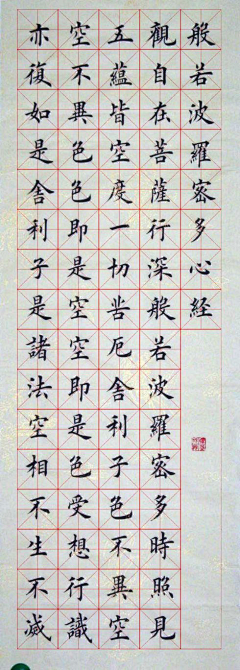 般若波羅密多心経
觀自在菩薩行深般若波羅密多時照見
五蘊皆空度一切苦厄舎利子色不異空
空不異色色即是空空即是色受想行識
亦復如是舎利子是諸法空相不生不滅